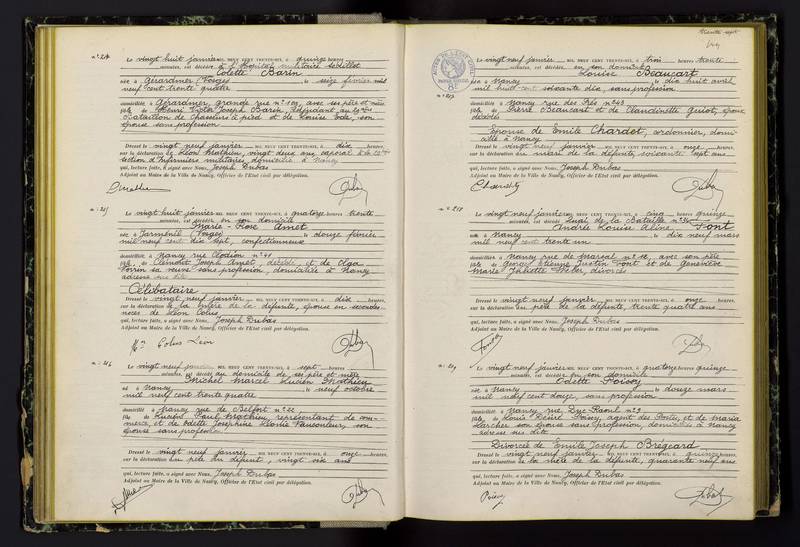 n° 214
Le vingt huit janvier MIL NEUF CENT TRENTE-SIX, à quinze heures
minutes, est décédée à l'hôpital militaire Sédillot
Colette Barin
née à Gérardmer (Vosges) le seize février mil
neuf cent trente quatre
domiciliée à Gérardmer, grande rue n° 109, avec ses père et mère
fille de Henri Joseph Barin, adjudant au
Bataillon de chasseurs à pied et de Louise son
épouse sans profession
Dressé le vingt neuf janvier MIL NEUF CENT TRENTE-SIX, à dix heures,
sur la déclaration de Léon Mathieu, vingt deux ans, caporal à la
section d'Infirmiers militaires, domicilié à Nancy
qui, lecture faite, a signé avec Nous, Joseph Dubas
Adjoint au Maire de la Ville de Nancy, Officier de l'Etat civil par délégation.
n° 215
Le vingt huit janvier MIL NEUF CENT TRENTE-SIX, à quatorze heures trente
minutes, est décédée en son domicile
Marie-Rose Amet
née à Jarménil (Vosges) le douze février
mil neuf cent dix sept, confectionneuse
domiciliée à Nancy rue Clodion n°
fille de Clément Joseph Amet, décédé et de Olga
sa veuve sans profession, domiciliée à Nancy
adresse sus dite
Célibataire
Dressé le vingt neuf janvier MIL NEUF CENT TRENTE-SIX, à dix heures,
sur la déclaration de la mère de la défunte, épouse en secondes
noces de Léon Colus
qui, lecture faite, a signé avec Nous, Joseph Dubas
Adjoint au Maire de la Ville de Nancy, Officier de l'Etat civil par délégation.
Colus Léon
n° 216
Le vingt neuf janvier MIL NEUF CENT TRENTE-SIX, à sept heures
minutes, est décédé au domicile de ses père et mère
Michel Marcel Lucien Mathieu
né à Nancy le neuf octobre
mil neuf cent trente quatre
domicilié à Nancy rue de Belfort n° 22
fils de Paul Mathieu, représentant de com-
merce, et de Odette Joséphine Léonie son
épouse sans profession
Dressé le vingt neuf janvier MIL NEUF CENT TRENTE-SIX, à onze heures,
sur la déclaration du père du défunt, vingt six ans
qui, lecture faite, a signé avec Nous, Joseph Dubas
Adjoint au Maire de la Ville de Nancy, Officier de l'Etat civil par délégation.
trente sept
Le vingt neuf janvier MIL NEUF CENT TRENTE-SIX, à trois heures trente
minutes, est décédée en son domicile
Louise Beaucart
née à Nancy le dix huit avril
mil huit cent soixante dix, sans profession
domiciliée à Nancy rue des Prés n° 43
fille de Pierre Beaucart et de Claudinette Guiot, époux
décédés
Epouse de Emile Chardet, cordonnier, domi-
cilié à Nancy
Dressé le vingt neuf janvier MIL NEUF CENT TRENTE-SIX, à onze heures,
sur la déclaration du mari de la défunte, soixante sept ans
qui, lecture faite, a signé avec Nous, Joseph Dubas
Adjoint au Maire de la Ville de Nancy, Officier de l'Etat civil par délégation.
n° 218
Le vingt neuf janvier MIL NEUF CENT TRENTE-SIX, à cinq heures quinze
minutes, est décédée Quai de la Bataille n°
Andrée Louise Aline Font
née à Nancy le dix neuf mars
mil neuf cent trente un
domiciliée à Nancy rue de Marsal n° 12, avec son père
fille de Georges Etienne Justin Font et de Geneviève
Marie Juliette Weber divorcés
Dressé le vingt neuf janvier MIL NEUF CENT TRENTE-SIX, à onze heures,
sur la déclaration du père de la défunte, trente quatre ans
qui, lecture faite, a signé avec Nous, Joseph Dubas
Adjoint au Maire de la Ville de Nancy, Officier de l'Etat civil par délégation.
n° 219
Le vingt neuf janvier MIL NEUF CENT TRENTE-SIX, à quatorze heures quinze
minutes, est décédée en son domicile
Odette Poirey
née à Nancy le douze mars
mil neuf cent douze, sans profession
domiciliée à Nancy rue Duc Raoul n° 29
fille de Louis Désiré Poirey, agent des Postes, et de Maria
Larcher son épouse sans profession, domiciliés à Nancy
adresse sus dite
Divorcée de Emile Joseph Brégeard
Dressé le vingt neuf janvier MIL NEUF CENT TRENTE-SIX, à quinze heures,
sur la déclaration de la mère de la défunte, quarante neuf ans
qui, lecture faite, a signé avec Nous, Joseph Dubas
Adjoint au Maire de la Ville de Nancy, Officier de l'Etat civil par délégation.